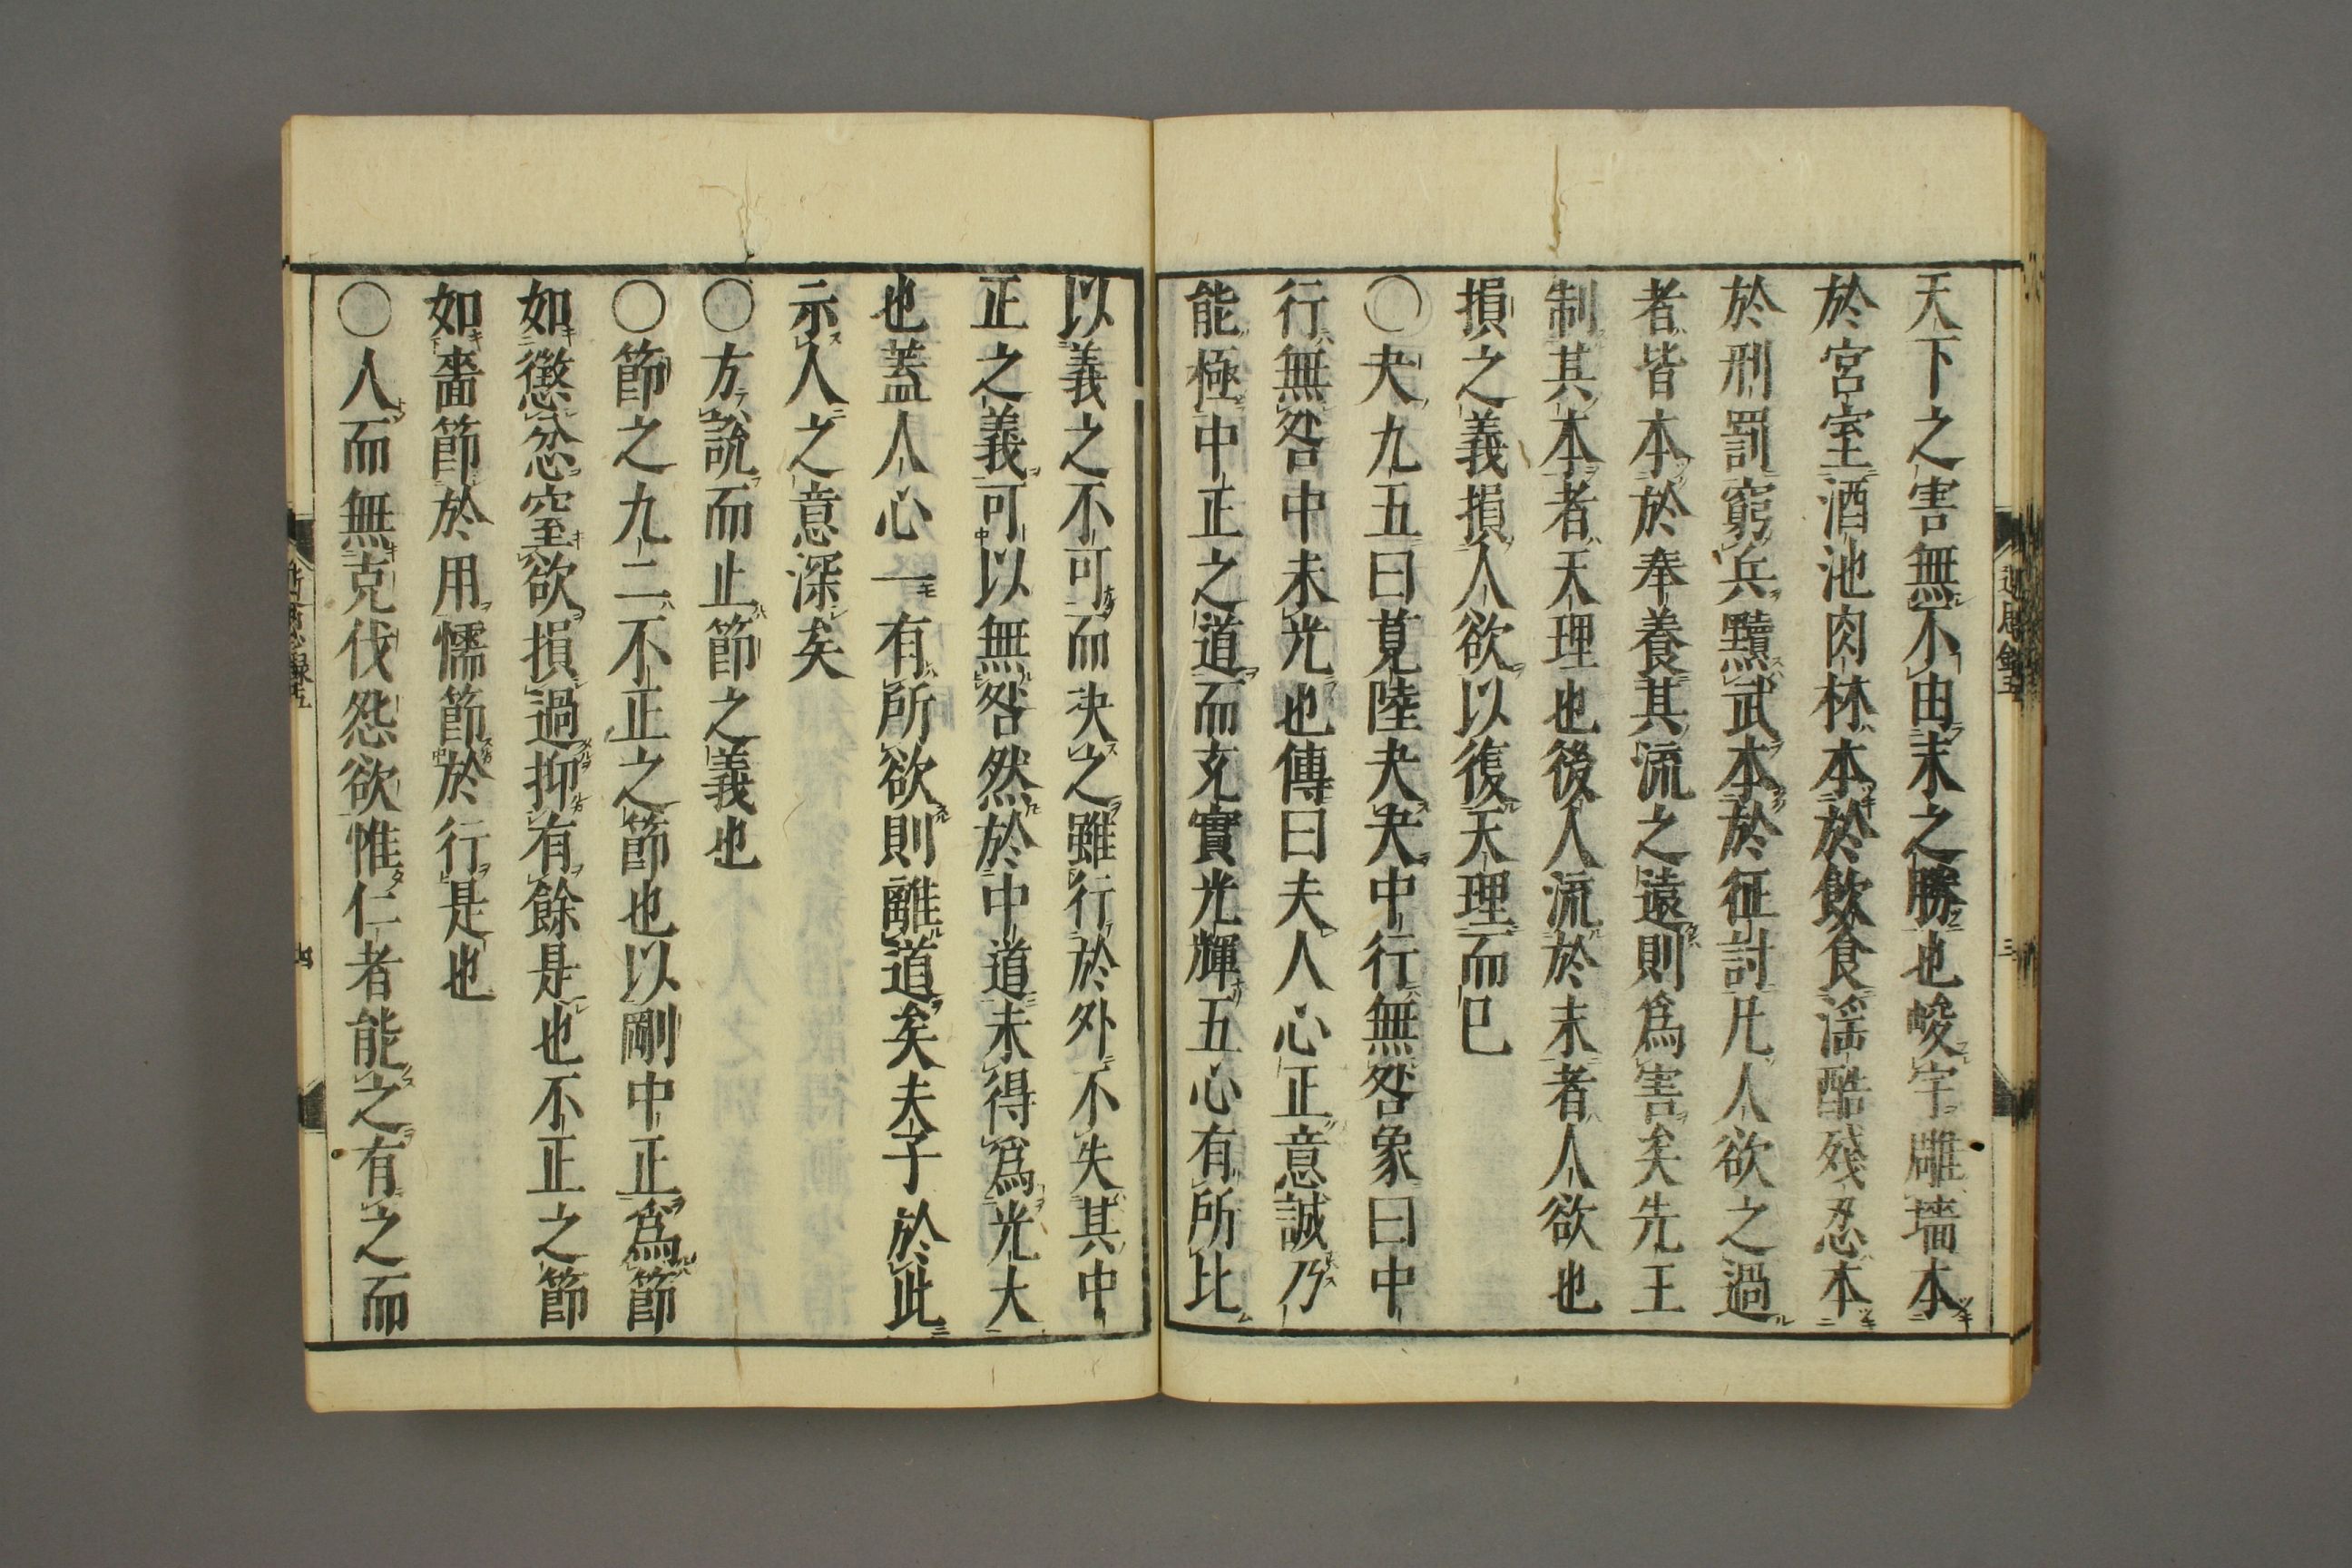 天下之害無不由末之勝也峻宇雕墻本
於宮室酒池肉林本於飲食滛酷殘忍本
於刑罰窮兵黷武本於征討凡人欲之過
者皆本於奉養其流之遠則爲害矣先王
制其本者天理也後人流於末者人欲也
損之義損人欲以復天理而已
〇夬九五曰莧陸夬夬中行無咎象曰中
行無咎中未光也傳曰夫人心正意誠乃
能極中正之道而充實光輝五心有所比
以義之不可而决之雖行於外不失其中
正之義可以無咎然於中道未得爲光大
也蓋人心一有所欲則離道矣夫子於此
示人之意深矣
〇方說而止節之義也
〇節之九二不正之節也以剛中正爲節
如懲忿窒欲損過抑有餘是也不正之節
如嗇節於用懦節於行是也
〇人而無克伐怨欲惟仁者能之有之而
近思錄五
三
近思錄五
四